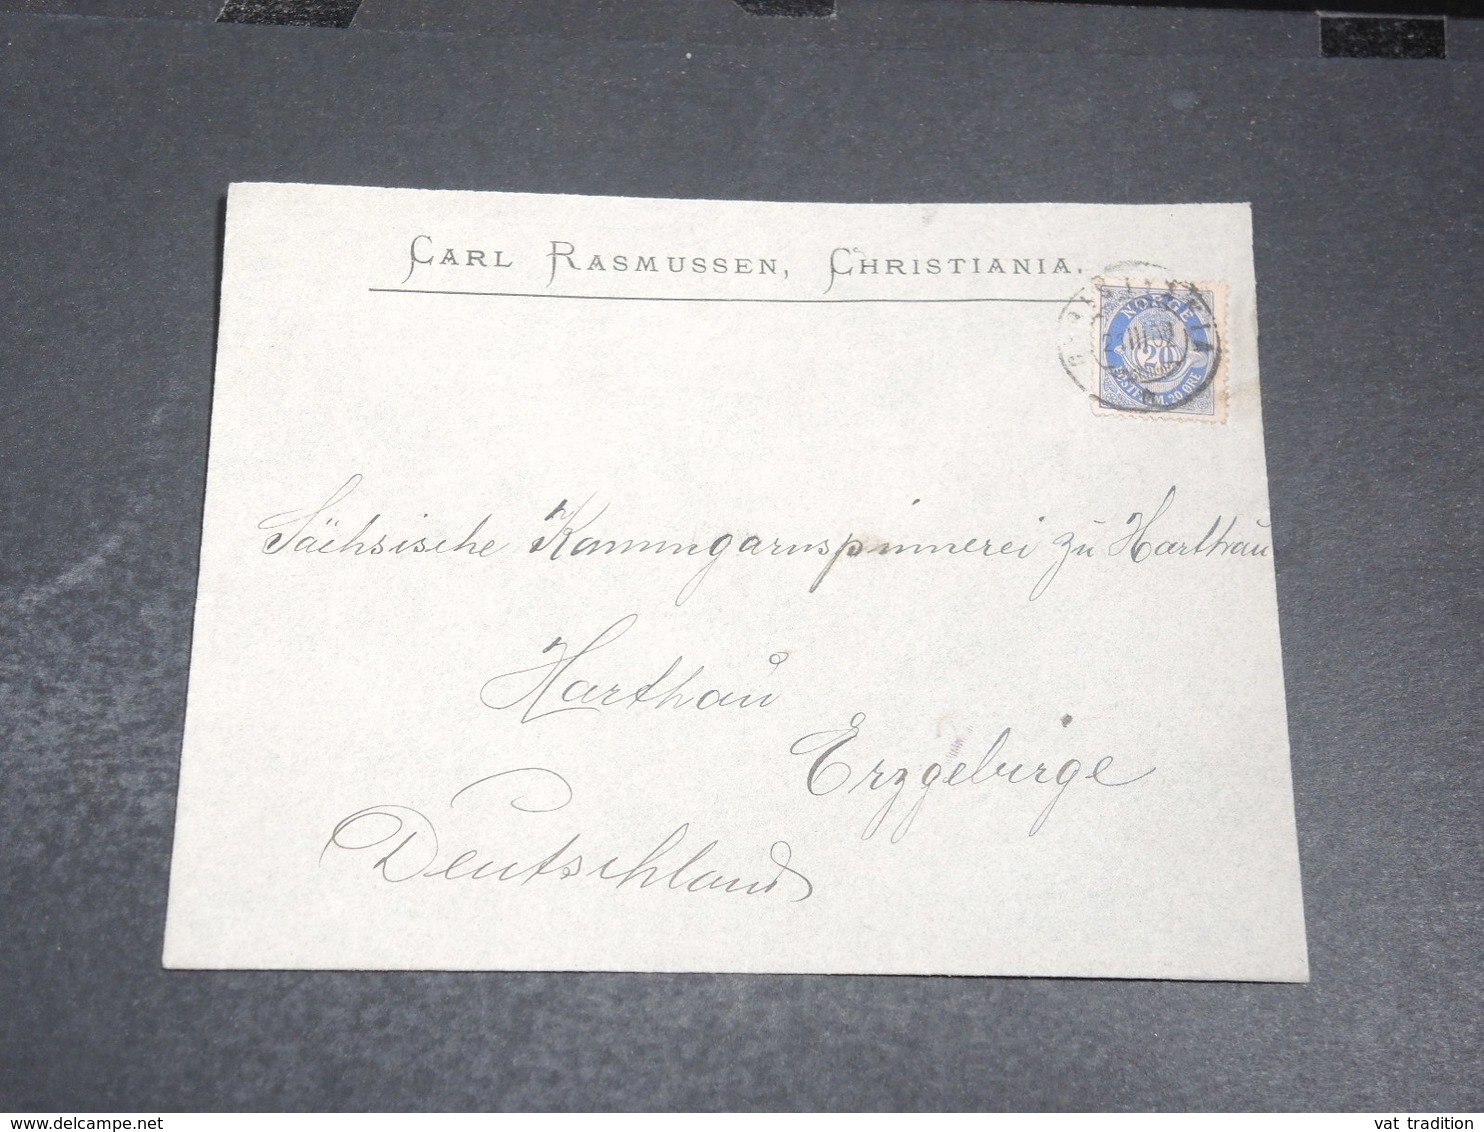 CARL RASMUSSEN, CHRISTIANIA.
NORGE
20
20 ØRE
Sächsische Kammgarnspinnerei zu Harthau
Harthau
Erzgebirge
Deutschland
delcampe.net
vat tradition